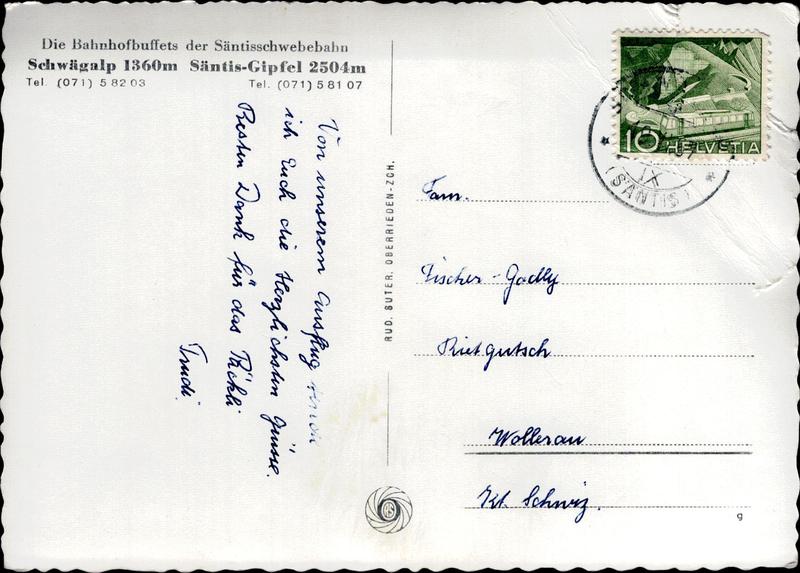 Die Bahnhofbuffets der Säntisschwebebahn
Schwägalp 1360m Säntis-Gipfel 2504m
Tel. (071) 5 82 03 Tel. (071) 5 81 07
Von unserem Ausflug
ich Euch die Herzlichsten Grüsse.
Besten Dank für das Päckli
Trudi
RUD. SUTER, OBERRIEDEN-ZCH.
10 HELVETIA
IX
(SÄNTIS)
Fam.
Fischer-Gadly
Rietgutsch
Wollerau
Kt. Schwiz.
g